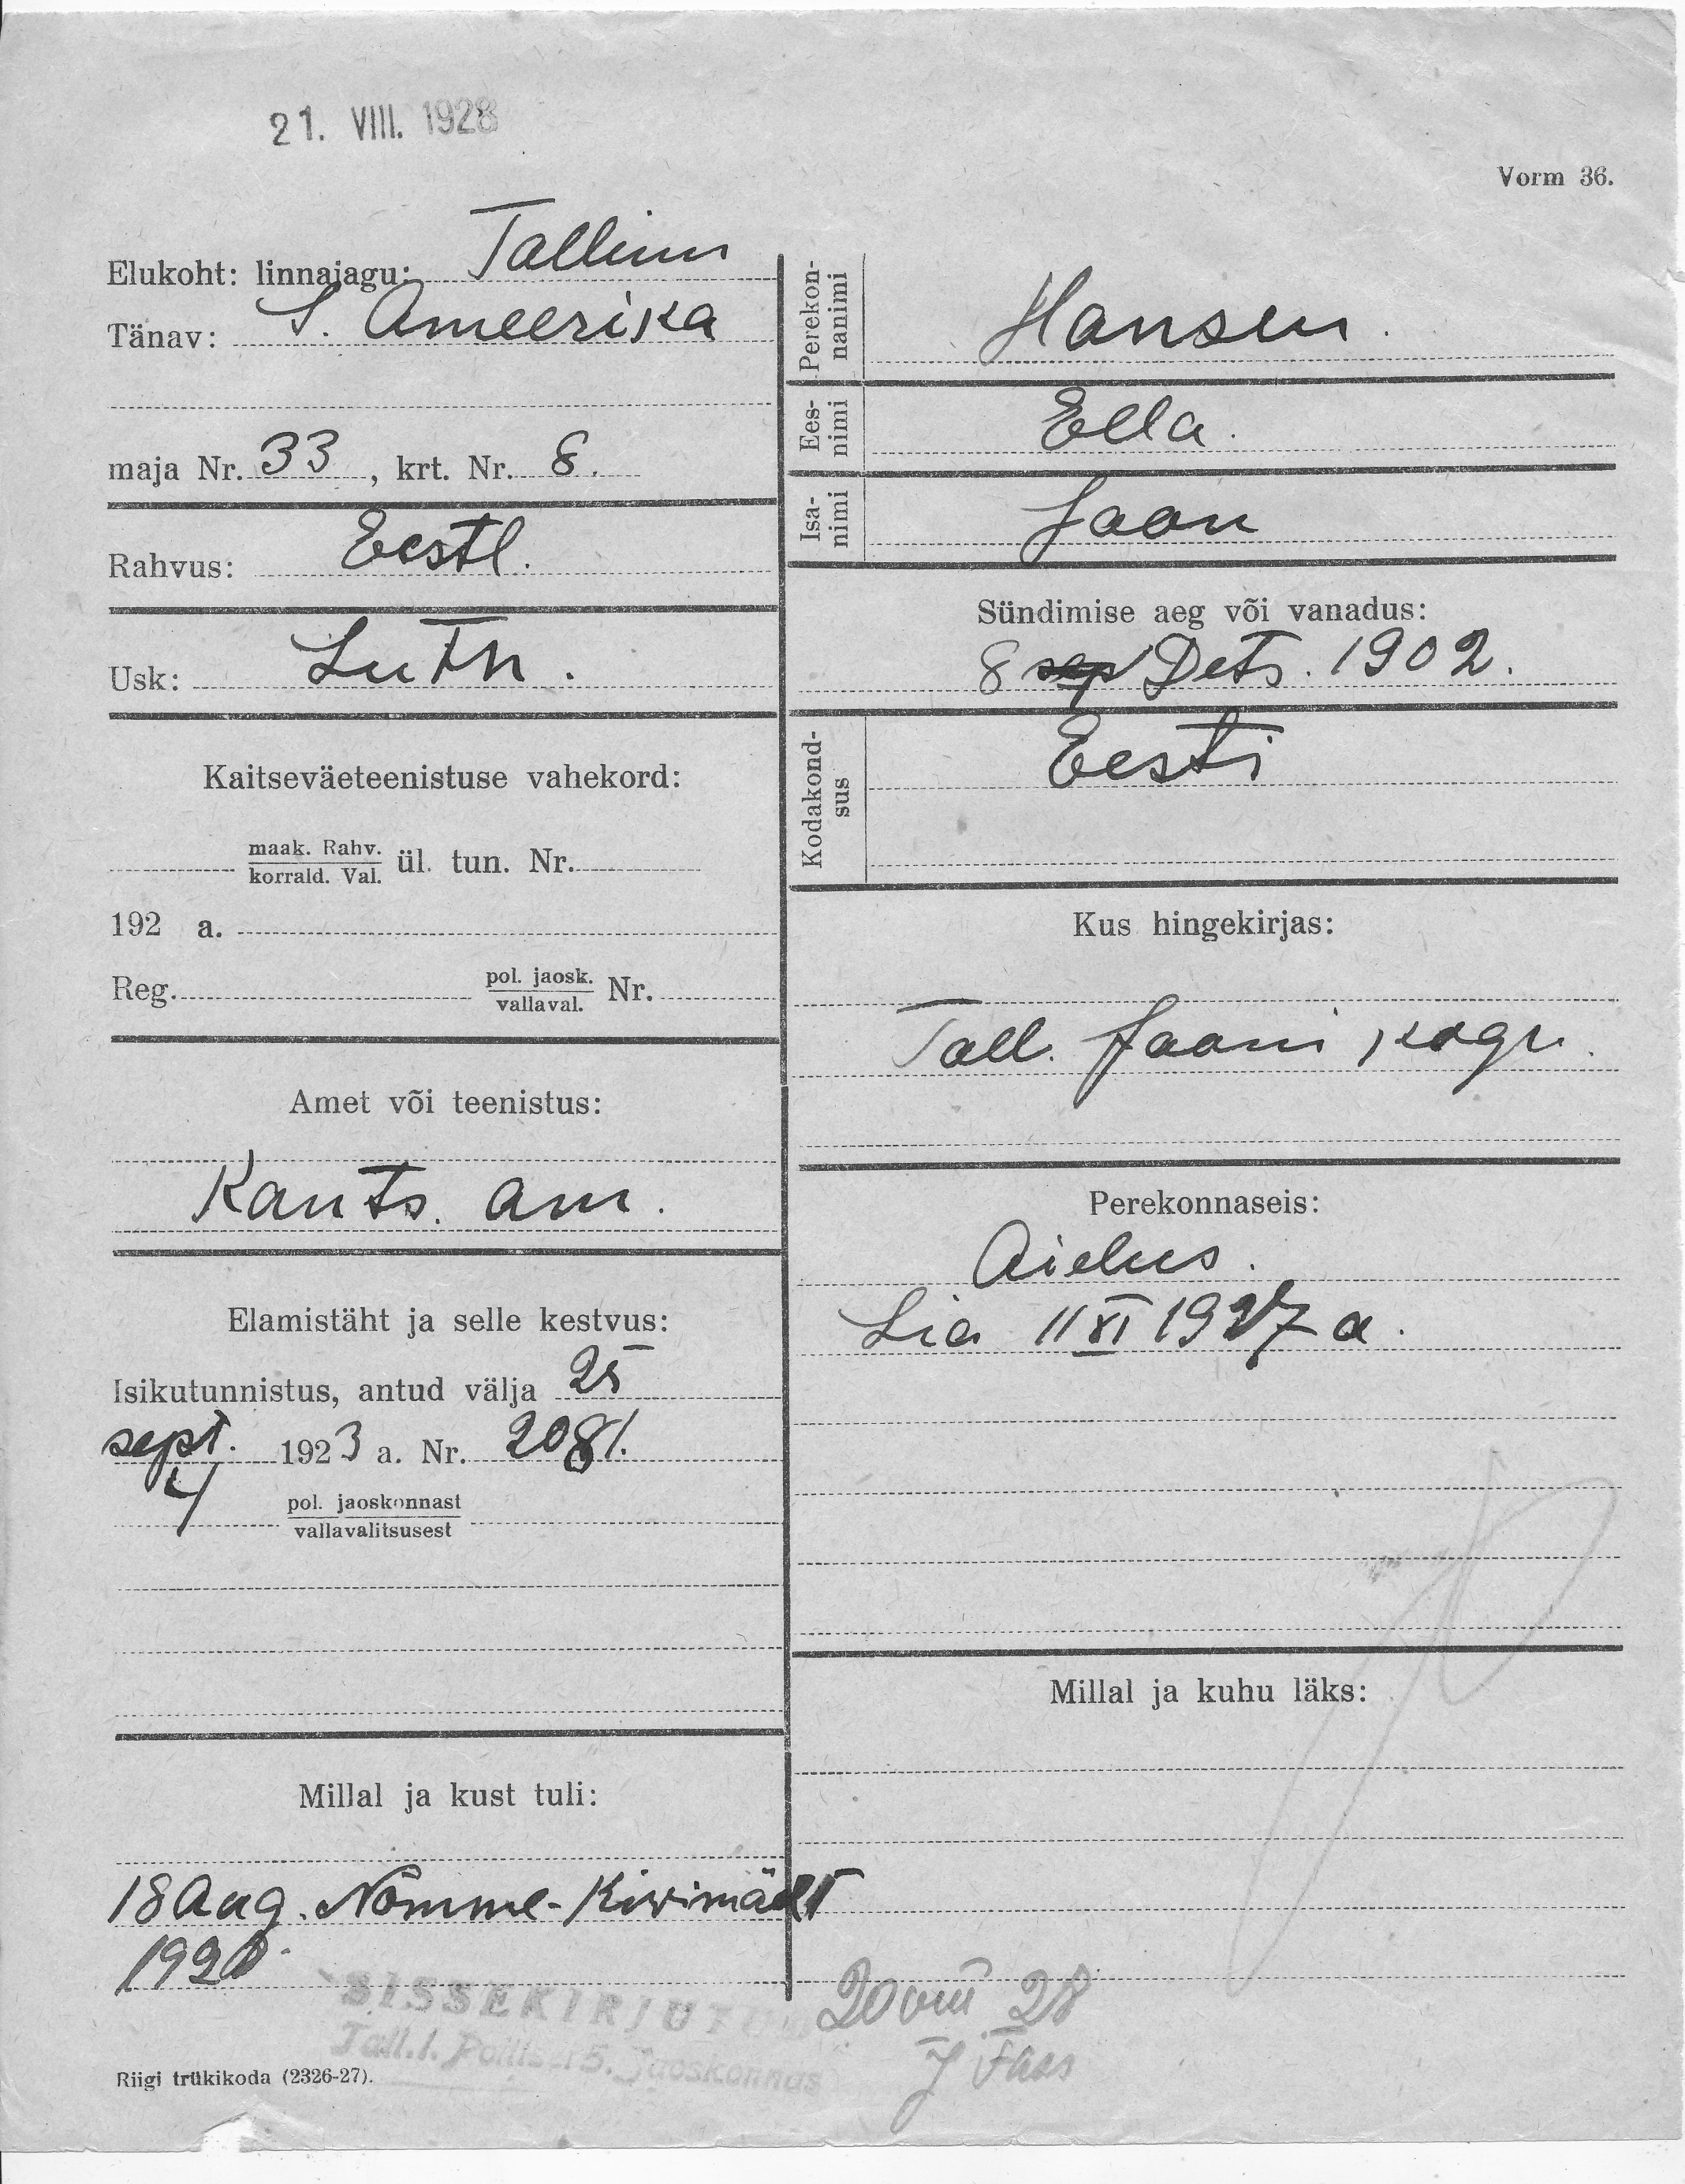 21. VIII. 1928
Vorm 36.
Elukoht: linnajagu: Tallinn
Tänav: S. Ameerika
maja Nr. 33, krt. Nr. 8.
Rahvus: Eestl.
Usk: Luth.
Kaitseväeteenistuse vahekord:
maak. Rahv.
korrald. Val.
ül. tun. Nr.
192 a.
Reg. pol. jaosk. Nr.
vallaval.
Amet või teenistus:
Kants. am.
Elamistäht ja selle kestvus:
Isikutunnistus, antud välja 25
sept. 1923 a. Nr. 2081.
4 pol. jaoskonnast
vallavalitsusest
Millal ja kust tuli:
18 Aug. Nõmme-Kivimäelt
1928.
SISSEKIRJUTUD
Tall.l. Politsei 5. jaoskonnas
Riigi trükikoda (2326-27).
Perekon-
nanimi
Hansen.
Ees-
nimi
Ella.
Isa-
nimi
Jaan
Sündimise aeg või vanadus:
8 sep Dets. 1902.
Kodakond-
sus
Eesti
Kus hingekirjas:
Tall. Jaani kogr.
Perekonnaseis:
Lia 11 XI 1927 a.
Millal ja kuhu läks:
20 VIII 28